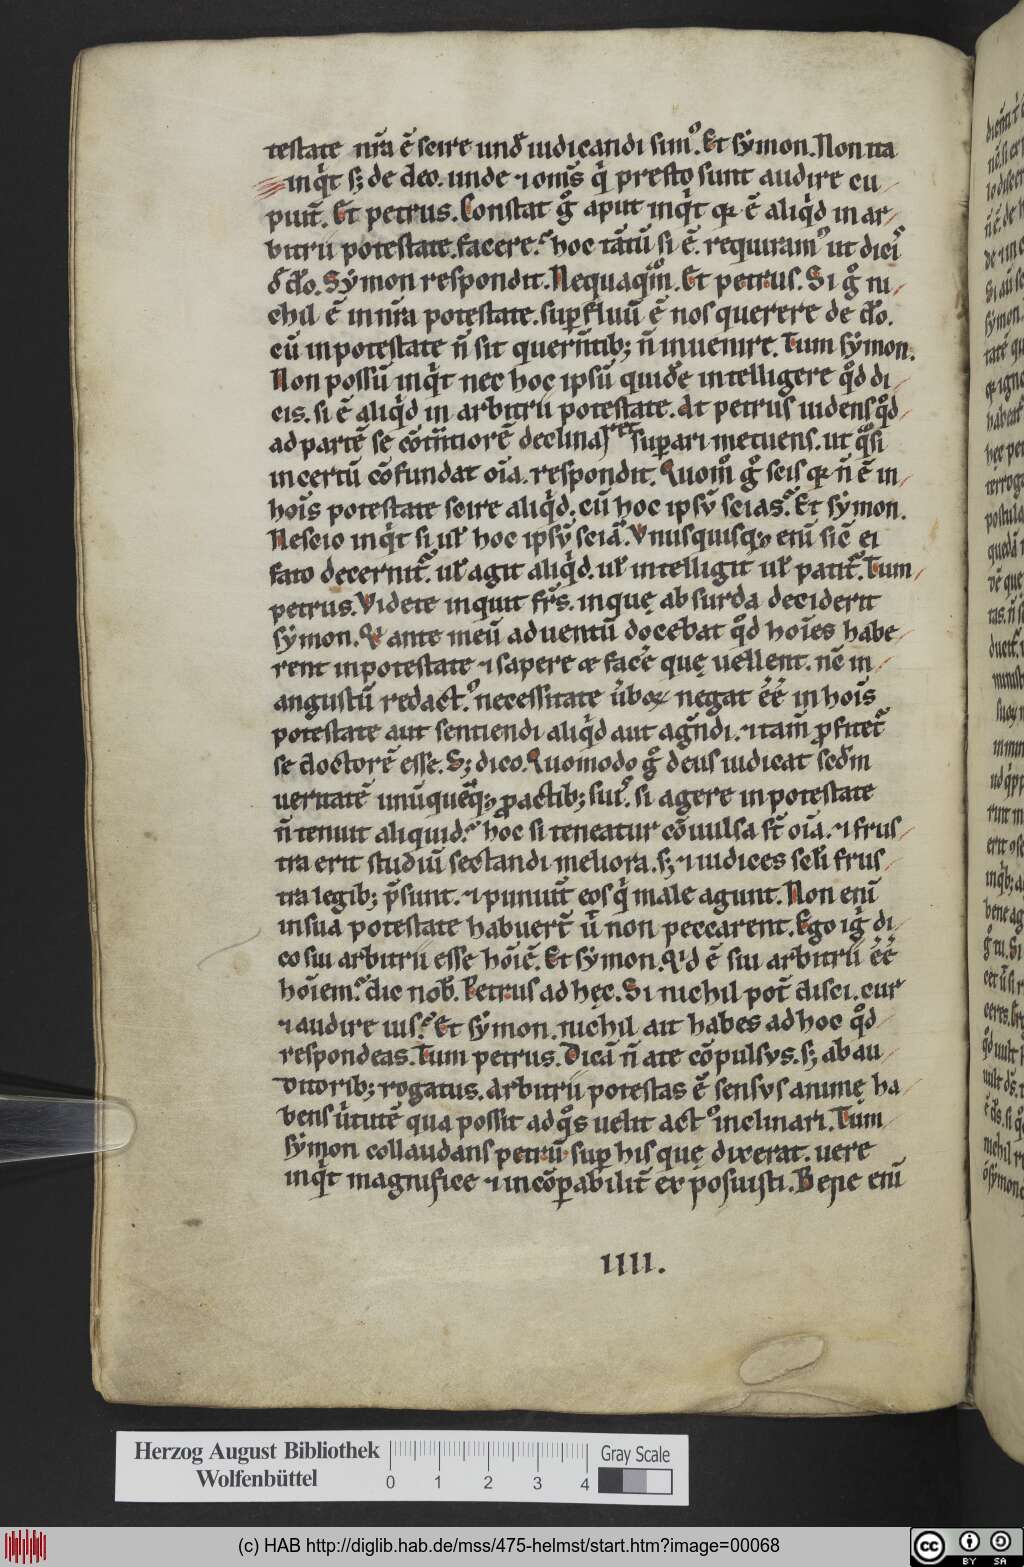 testate nr̄a ē scire und̄ iudicandi sim᷒. Et sẏmon. Non ita
inq̇t s; de deo. unde ⁊ om̄s q̇ presto sunt audire cu
piut̄. Et petrus. Constat g̊ aput inq̇t qꝛ ē aliq̇d in ar
bitrii potestate facere. hoc tātū si ē. requiram᷒ ut dici
ð dō. Sẏmon respondit. Nequaq̄m. Et petrus. Si g̊ ni
chil ē in nr̄a potestate. suꝑfluū ē nos querere de dō.
cū in potestate n̄ sit quern̄tib; n̄ inuenire. Tum sẏmon.
Non possū inq̇t nec hoc ipsū quidē intelligere qd̊ di
cis. si ē aliq̇d in arbitrii potestate. At petrus uidens qd̊
ad partē se cōtn̄tiorē declinaret suꝑari metuens. ut q̊si
incertū cōfundat oīa. respondit. Quom̊ g̊ scis qꝛ n̄ ē in
hoīs potestate scire aliq̇d. cū hoc ipsū scias. Et sẏmon.
Nescio inq̇t si ul̄ hoc ipsū sciā. Vnusquisqꝫ enī sic̄ ei
fato decernit᷑. ul̄ agit aliq̇d. ul̄ intelligit ul̄ patit᷑. Tum
petrus. Videte inquit fr̄s. in quę absurda deciderit
sẏmon. Qi ante meū aduentū docebat qd̊ hoīes habe
rent in potestate ⁊ sapere & facē quę uellent. nc̄ in
angustū redact᷒ necessitate ūboꝝ negat ēē in hoīs
potestate aut sentiendi aliq̇d aut agn̄di. ⁊ tam̄ ꝓfitet᷑
se doctorē esse. S; dico. Quomodo g̊ deus iudicat scd̄m
ueritatē unūquēqꝫ ꝓ actib; suis. si agere in potestate
n̄ tenuit aliquid. hoc si teneatur cōuulsa st̄ oīa. ⁊ frus
tra erit studiū sectandi meliora. s; ⁊ iudices scl̄i frus
tra legib; p̄sunt. ⁊ puniut̄ eos q̇ male agunt. Non enī
in sua potestate habuert̄ ut non peccarent. Ego ig̊ di
co sui arbitrii esse hoīē. Et sẏmon. Qid ē sui arbitrii ēē
hoīem. dic nob̄. Petrus ad hęc. Si nichil pot̄ disci. cur
⁊ audire uis. Et sẏmon. nichil ait habes ad hoc qd̊
respondeas. Tum petrus. Dicā n̄ a te cōpulsus. s; ab au
ditorib; rogatus. Arbitrii potestas ē sensus animę ha
bens ūtutē qua possit ad q̊s uelit act᷒ inclinari. Tum
sẏmon collaudans petrū suꝑ his quę dixerat. uere
inq̇t magnifice ⁊ incōꝑabilit̄ exposuisti. Bene enī
IIII.
Herzog August Bibliothek
Wolfenbüttel
0 1 2 3 4
Gray Scale
(c) HAB http://diglib.hab.de/mss/475-helmst/start.htm?image=00068
cc BY SA